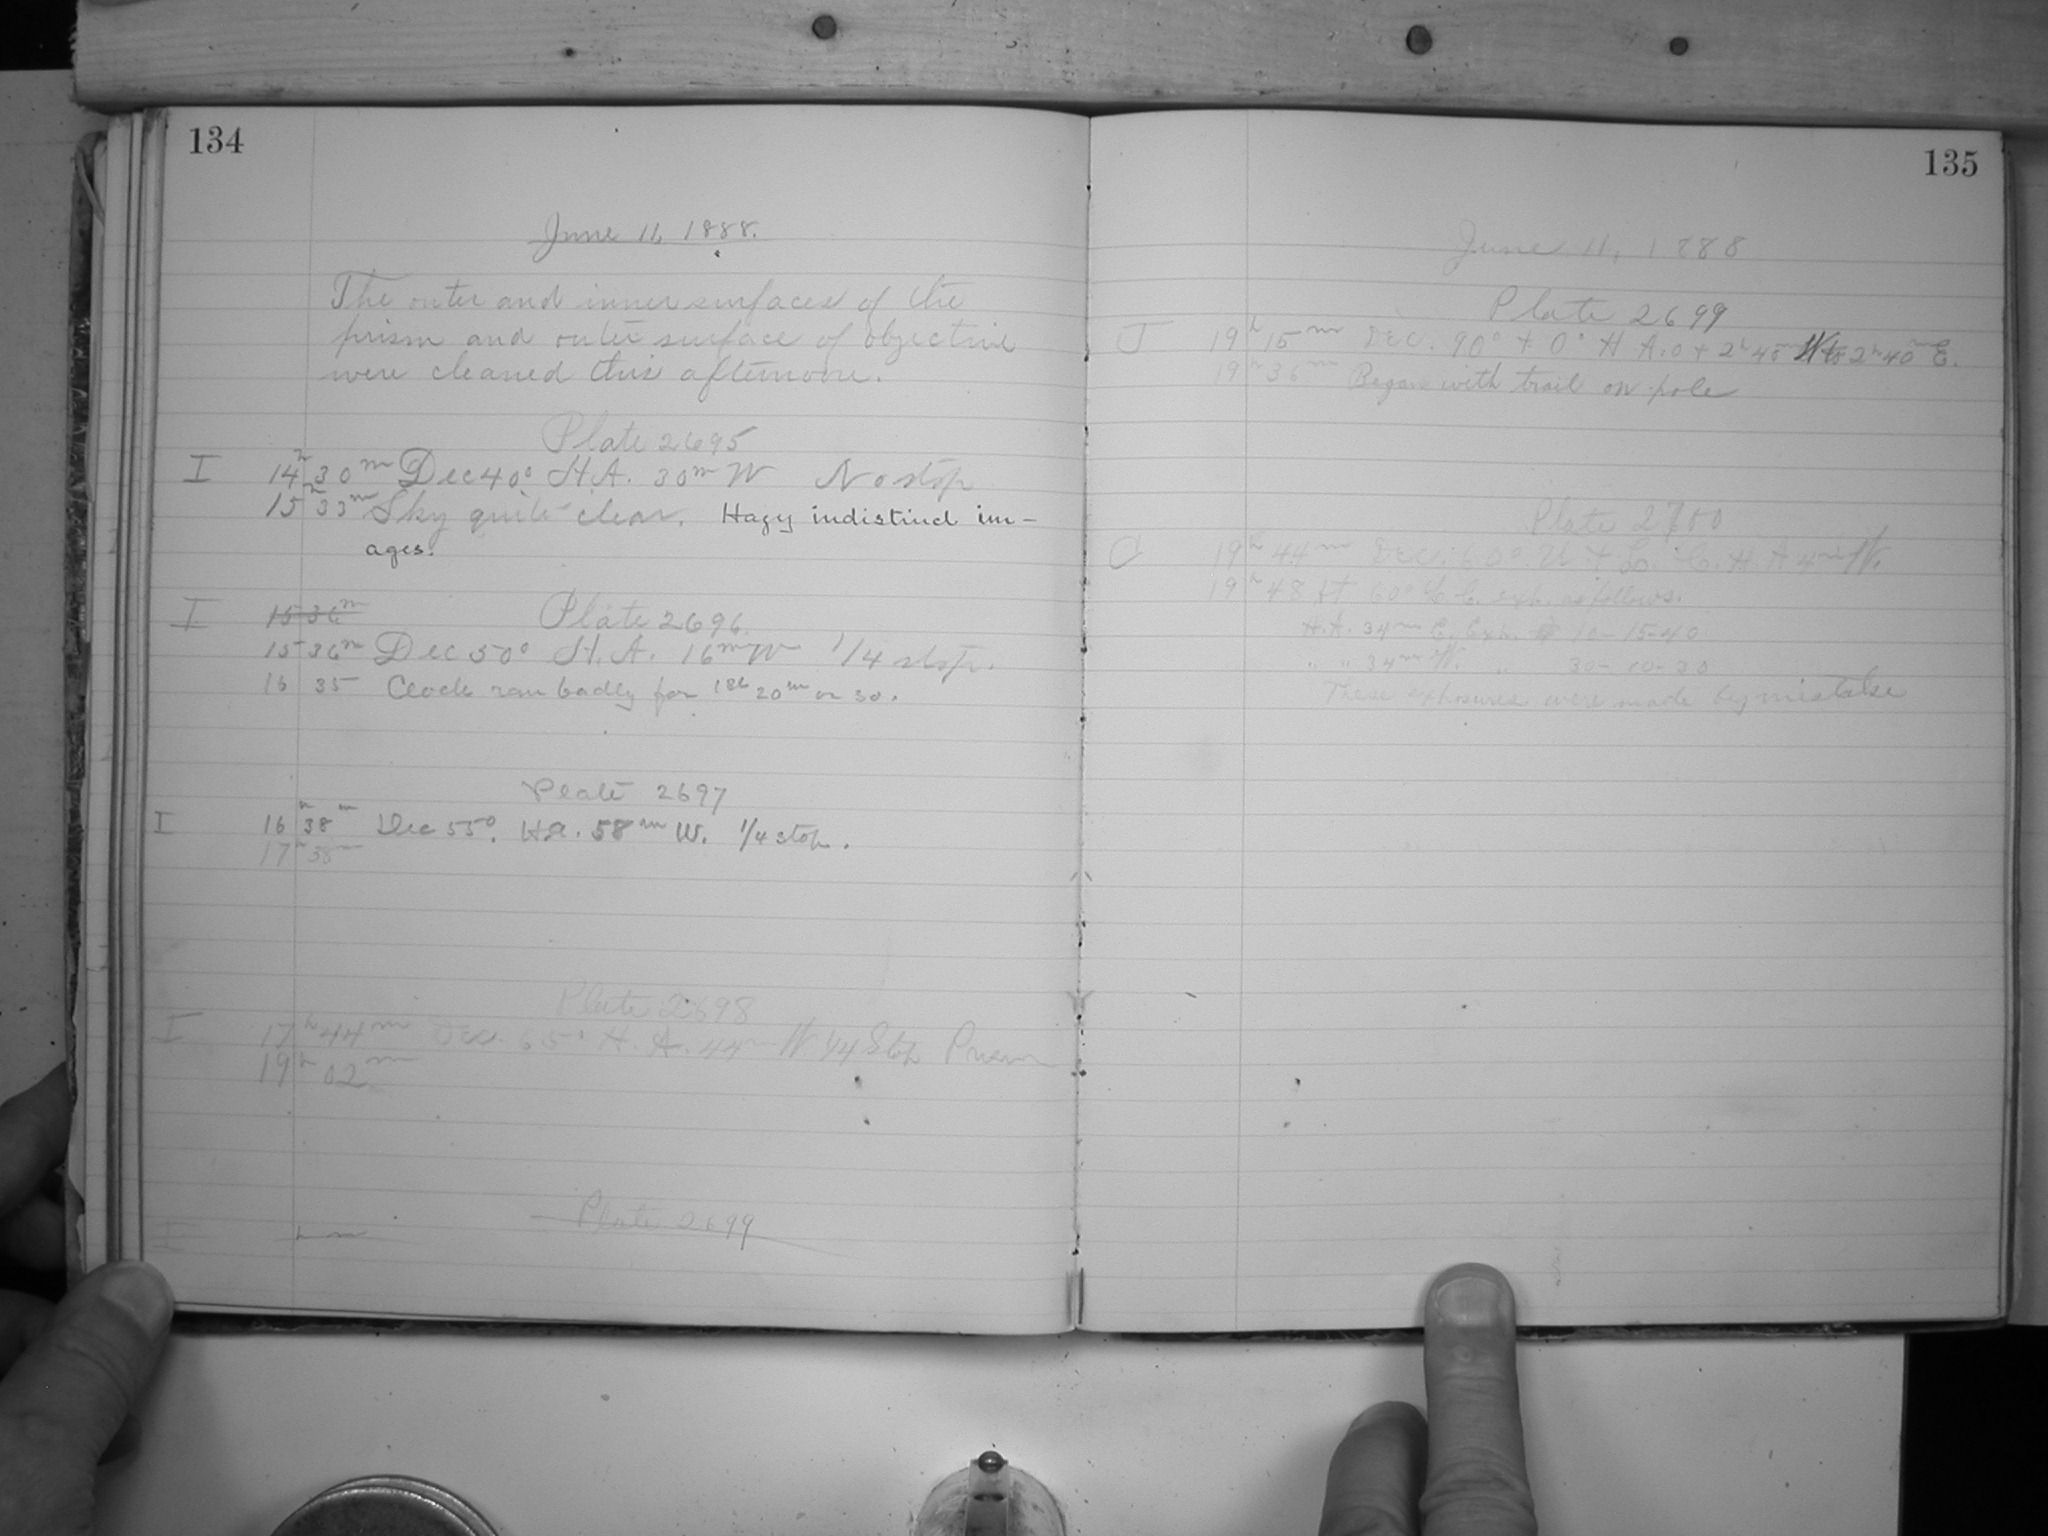 134
June 11, 1888.
The outer and inner surfaces of the
prism and outer surface of objective
were cleaned this afternoon.
Plate 2695
I 14h 30m Dec 40° H.A. 30m W No stop
15h 33m Sky quite clear. Hazy indistinct im-
ages.
I 15 36m Plate 2696.
15 36m Dec 50° H.A. 16m W 1/4 stop.
16 35 Clock ran badly for 20m or 30.
Plate 2697
I 16h 38m Dec 55°. H.A. 58m W. 1/4 stop.
17h 38m
Plate 2698
I 17h 44m Dec. 65° H.A. 44m W 1/4 Stop Prism
19h 02m
Plate 2699
I h m
135
June 11, 1888
Plate 2699
J 19h 15m Dec. 90° + 0° H A. 0 + 2h 45m W to 2h 40m E.
19h 36m Began with trail on pole
Plate 2700
C 19h 44m Dec. 60° U + L. C. H. A 4m W.
19h 48 At 60° L C. exh. as follows.
H.A. 34m E. Exh. 10-15-40
" " 34m W. " 30-10-30
These exposures were made by mistake